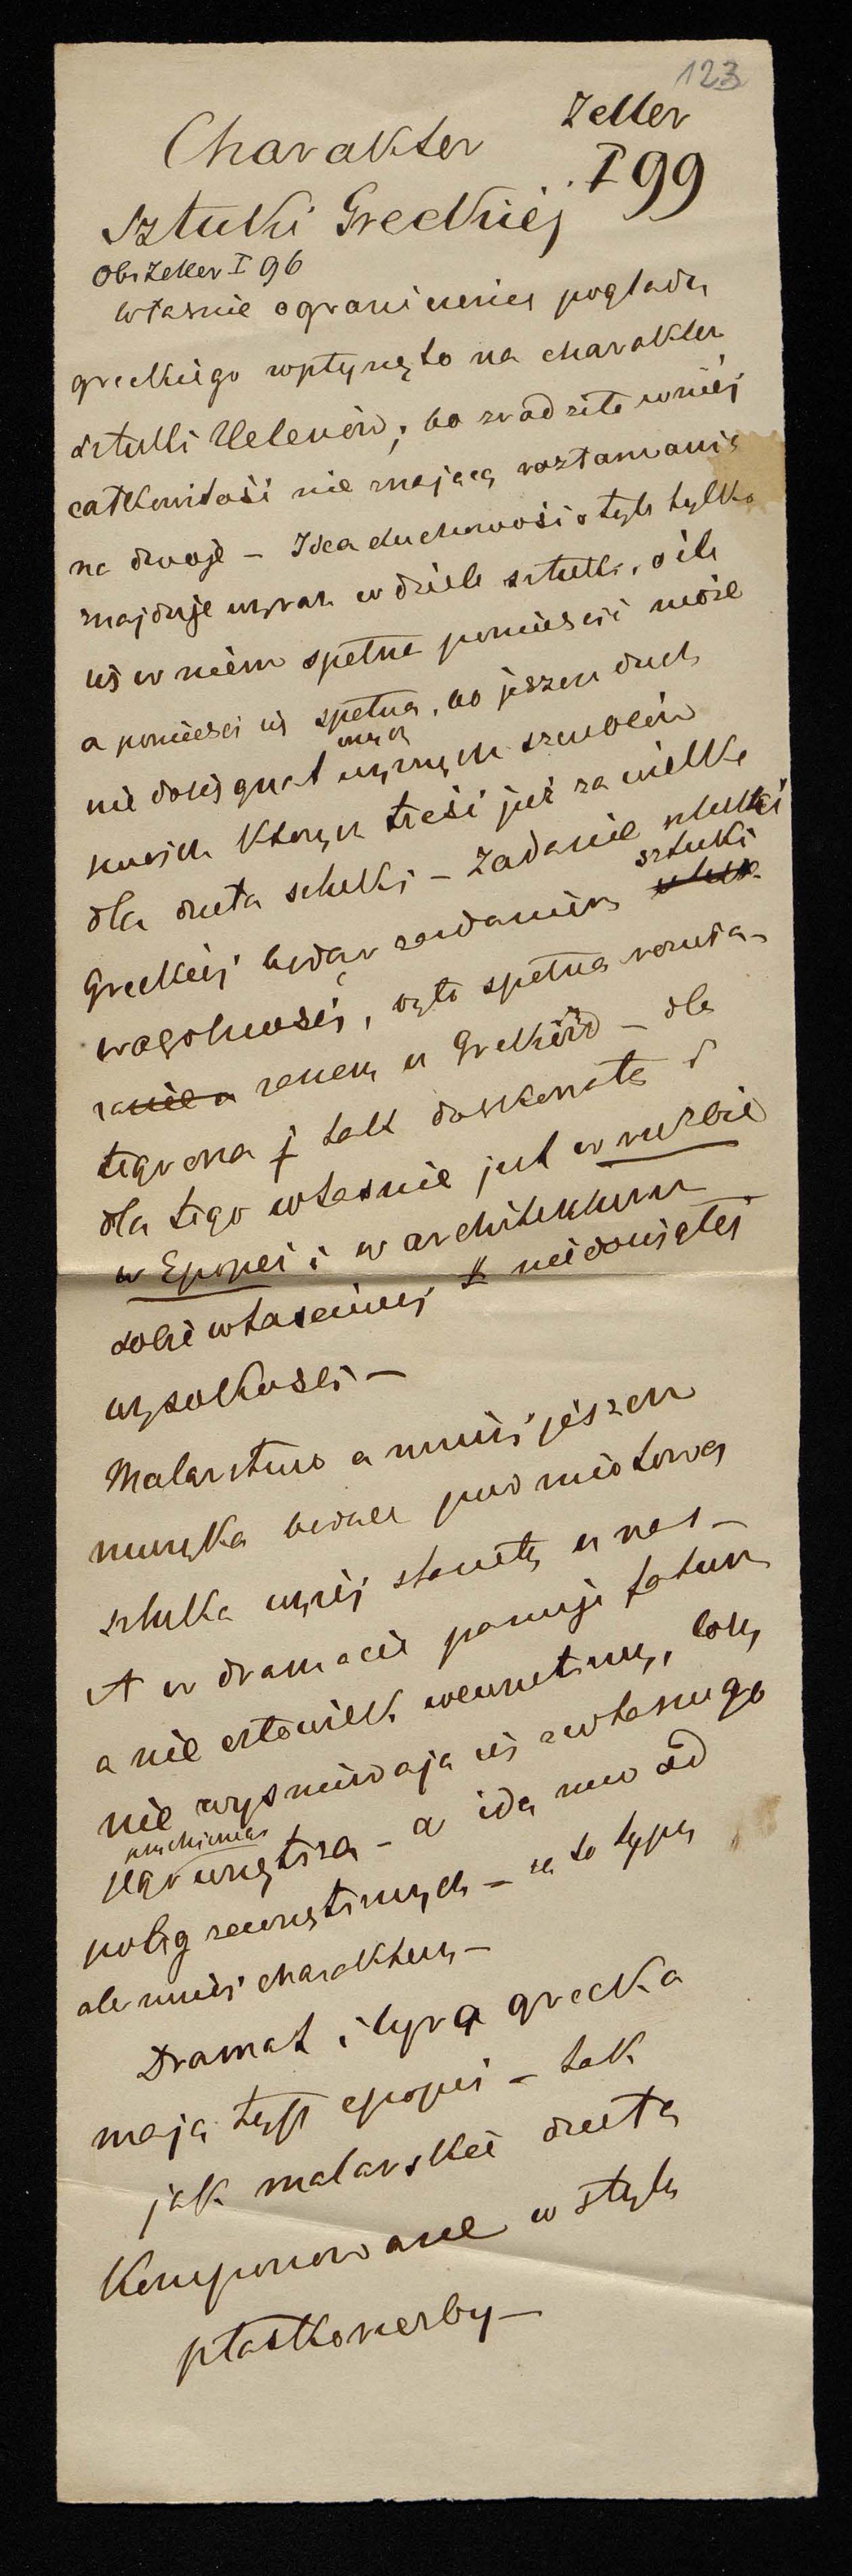 123
Charakter Zeller
Sztuki Greckiéj I 99
Ob. Zeller I 96
Własnie ograniczenie poglądu
greckiego wpłynęło na charakter
sztuki Helenów; bo zradziło w niéj
całkowitość nie znającą rozłamania
na dwoje – Idea duchowości o tyle tylko
znajduje wyraz w dziele sztuki, o ile
się w niem spełna pomieścić może
a pomieści się spełna, bo jeszcze duch
nie dosięgnął onych wyższych szczeblów
swoich których treść już za wielka
dla dzieła sztuki – Zadanie sztuki
Greckiéj będąc zadaniem sztuki
w ogólności, było spełna rozwią-
zanem u Greków – dla
tego ona j tak doskonałą i
dla tego własnie jest w rzeźbie
w Epopei i w architekturze
sobie właściwej niedosięgłej
wysokości –
Malarstwo a mniéj jeszcze
muzyka będąca podmiotową
sztuką wyżéj stanęły u nas –
A w dramacie panuje fatum
a nie człowiek wewnetrzny, losy
nie wysnuwają się z własnego
jego wnętrza – a idą mu od
potęg zewnętrznych – są to typy
ale mniéj charaktery –
Dramat i lyra grecka
mają typ epopei – tak
jak malarskie dzieła
Komponowane w stylu
płaskorzeźby –